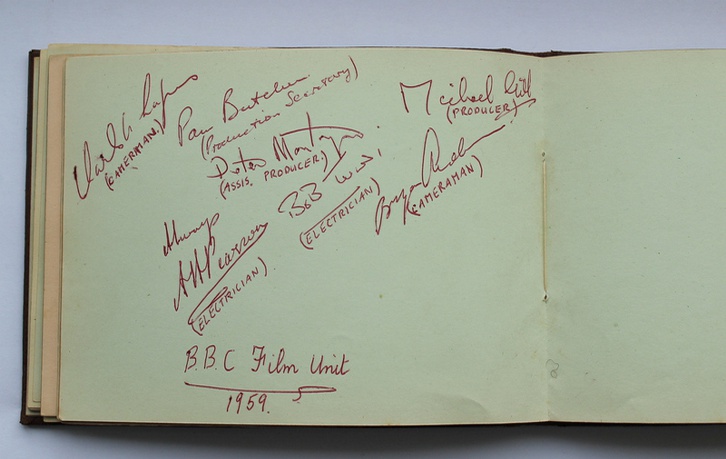 Charles Lagus
(CAMERMAN.)
Pam Butcher
(Production Secretary)
Peter Montagnon
(ASSIS. PRODUCER.)
Michael
(PRODUCER)
BoB
(ELECTRICIAN)
(CAMERAMAN)
Always
Pearson
(ELECTRICIAN)
B.B.C Film Unit
1959.